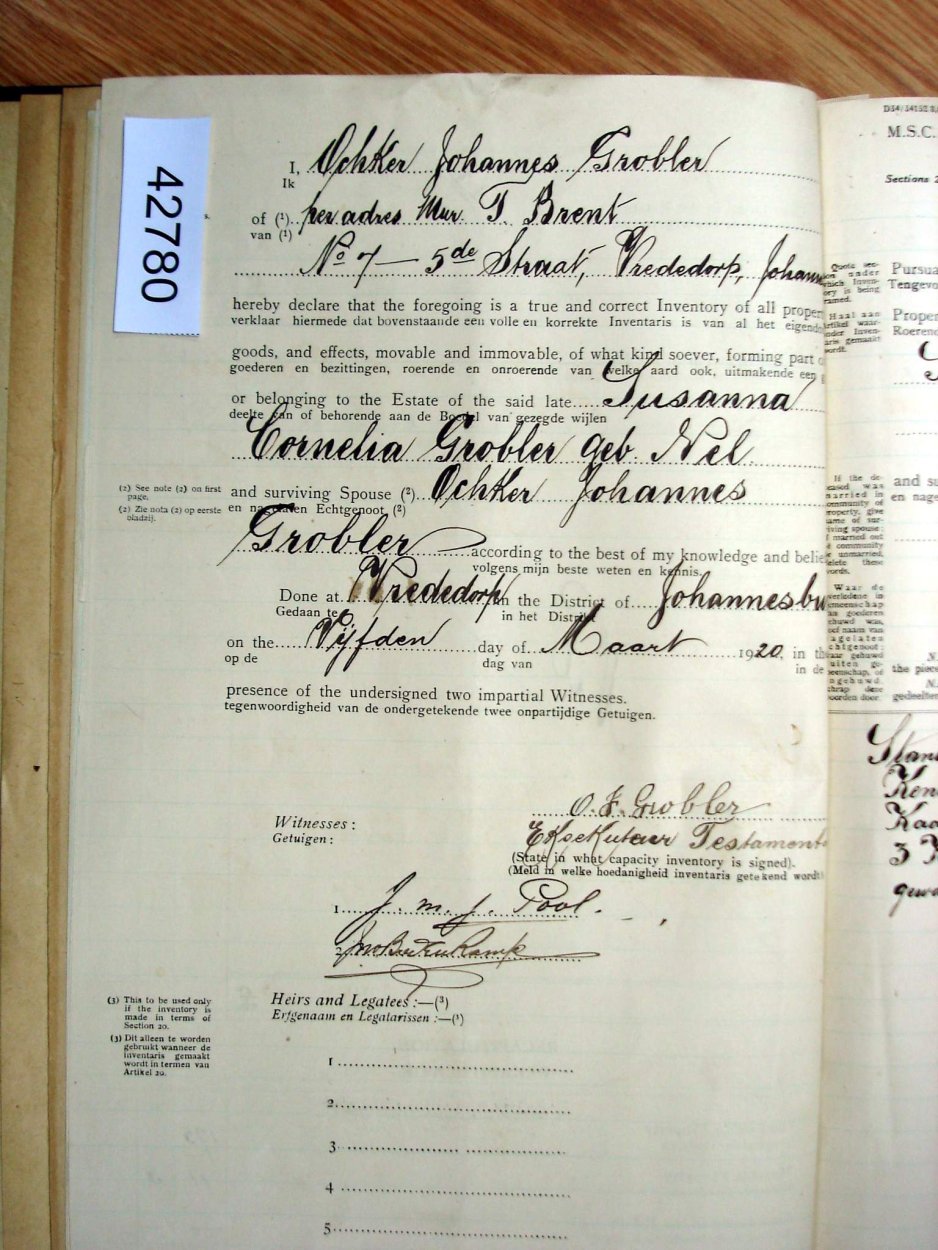 42780
I, Ochker Johannes Grobler
Ik
of (1) per adres Mnr. T Brent
van (1)
No 7 — 5de Straat, Vrededorp, Johann
hereby declare that the foregoing is a true and correct Inventory of all proper
verklaar hiermede dat bovenstaande een volle en korrekte Inventaris is van al het eigend
goods, and effects, movable and immovable, of what kind soever, forming part o
goederen en bezittingen, roerende en onroerende van welke aard ook, uitmakende een g
or belonging to the Estate of the said late Susanna
deelte van of behorende aan de Boedel van gezegde wijlen
Cornelia Grobler geb. Nel.
(2) See note (2) on first
page.
(2) Zie nota (2) op eerste
bladzij.
and surviving Spouse (2) Ochker Johannes
en nagelaten Echtgenoot, (2)
Grobler according to the best of my knowledge and belie
volgens mijn beste weten en kennis.
Done at Vrededorp in the District of Johannesbu
Gedaan te in het District
on the Vijfden day of Maart 1920, in th
op de dag van in de
presence of the undersigned two impartial Witnesses.
tegenwoordigheid van de ondergetekende twee onpartijdige Getuigen.
O. J. Grobler
Witnesses:
Getuigen:
Eksekuteur Testament
(State in what capacity inventory is signed).
(Meld in welke hoedanigheid inventaris getekend wordt
1 J. M. J. Pool.
2
Heirs and Legatees:—(3)
Erfgenaam en Legatarissen:—(3)
(3) This to be used only
if the inventory is
made in terms of
Section 20.
(3) Dit alleen te worden
gebruikt wanneer de
inventaris gemaakt
wordt in termen van
Artikel 20.
1
2
3
4
5
D34/14152
M.S.C.
Sections 2
Quote sec-
ion under
which Inven-
ory is being
ramed.
Haal aan
Artikel waar-
onder Inven-
aris gemaakt
wordt.
Pursua
Tengevo
Proper
Roerend
If the de-
ceased was
married in
community of
roperty, give
ame of sur-
iving spouse;
f married out
f community
r unmarried,
elete these
ords.
and su
en nage
Waar de
verledene in
emeenschap
an goederen
ehuwd was,
eef naam van
agelaten
chtgenoot;
aar gehuwd
uiten ge-
eenschap, of
ngehuwd,
chrap deze
oorden door.
N.
the piece
N.
gedeelten
Stan
3